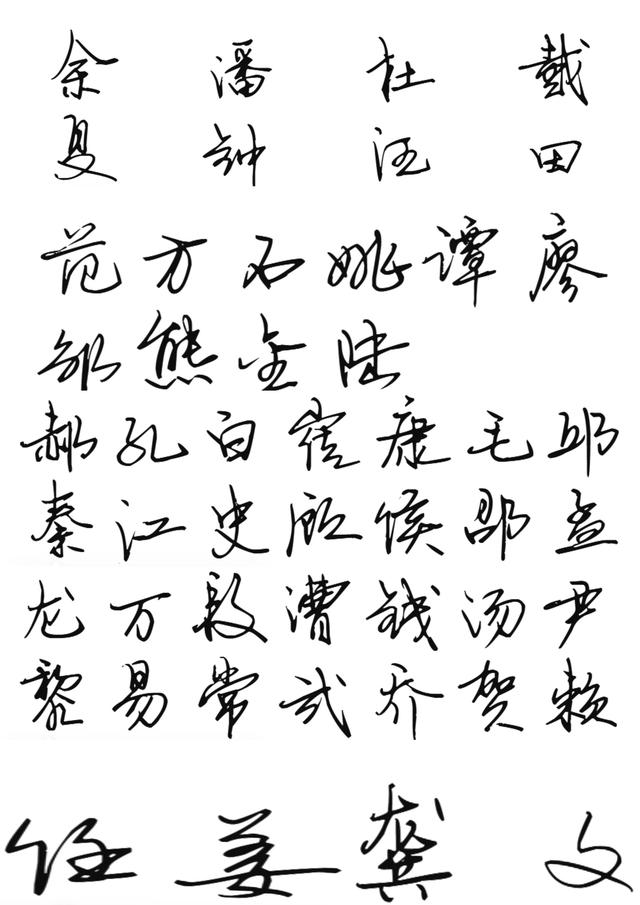 余 潘 杜 戴
夏 钟 汪 田
范 方 石 姚 谭 廖
邹 熊 金 陆
郝 孔 白 崔 康 毛 邱
秦 江 史 顾 侯 邵 孟
龙 万 段 漕 钱 汤 尹
黎 易 常 武 乔 贺 赖
任 姜 龚 文